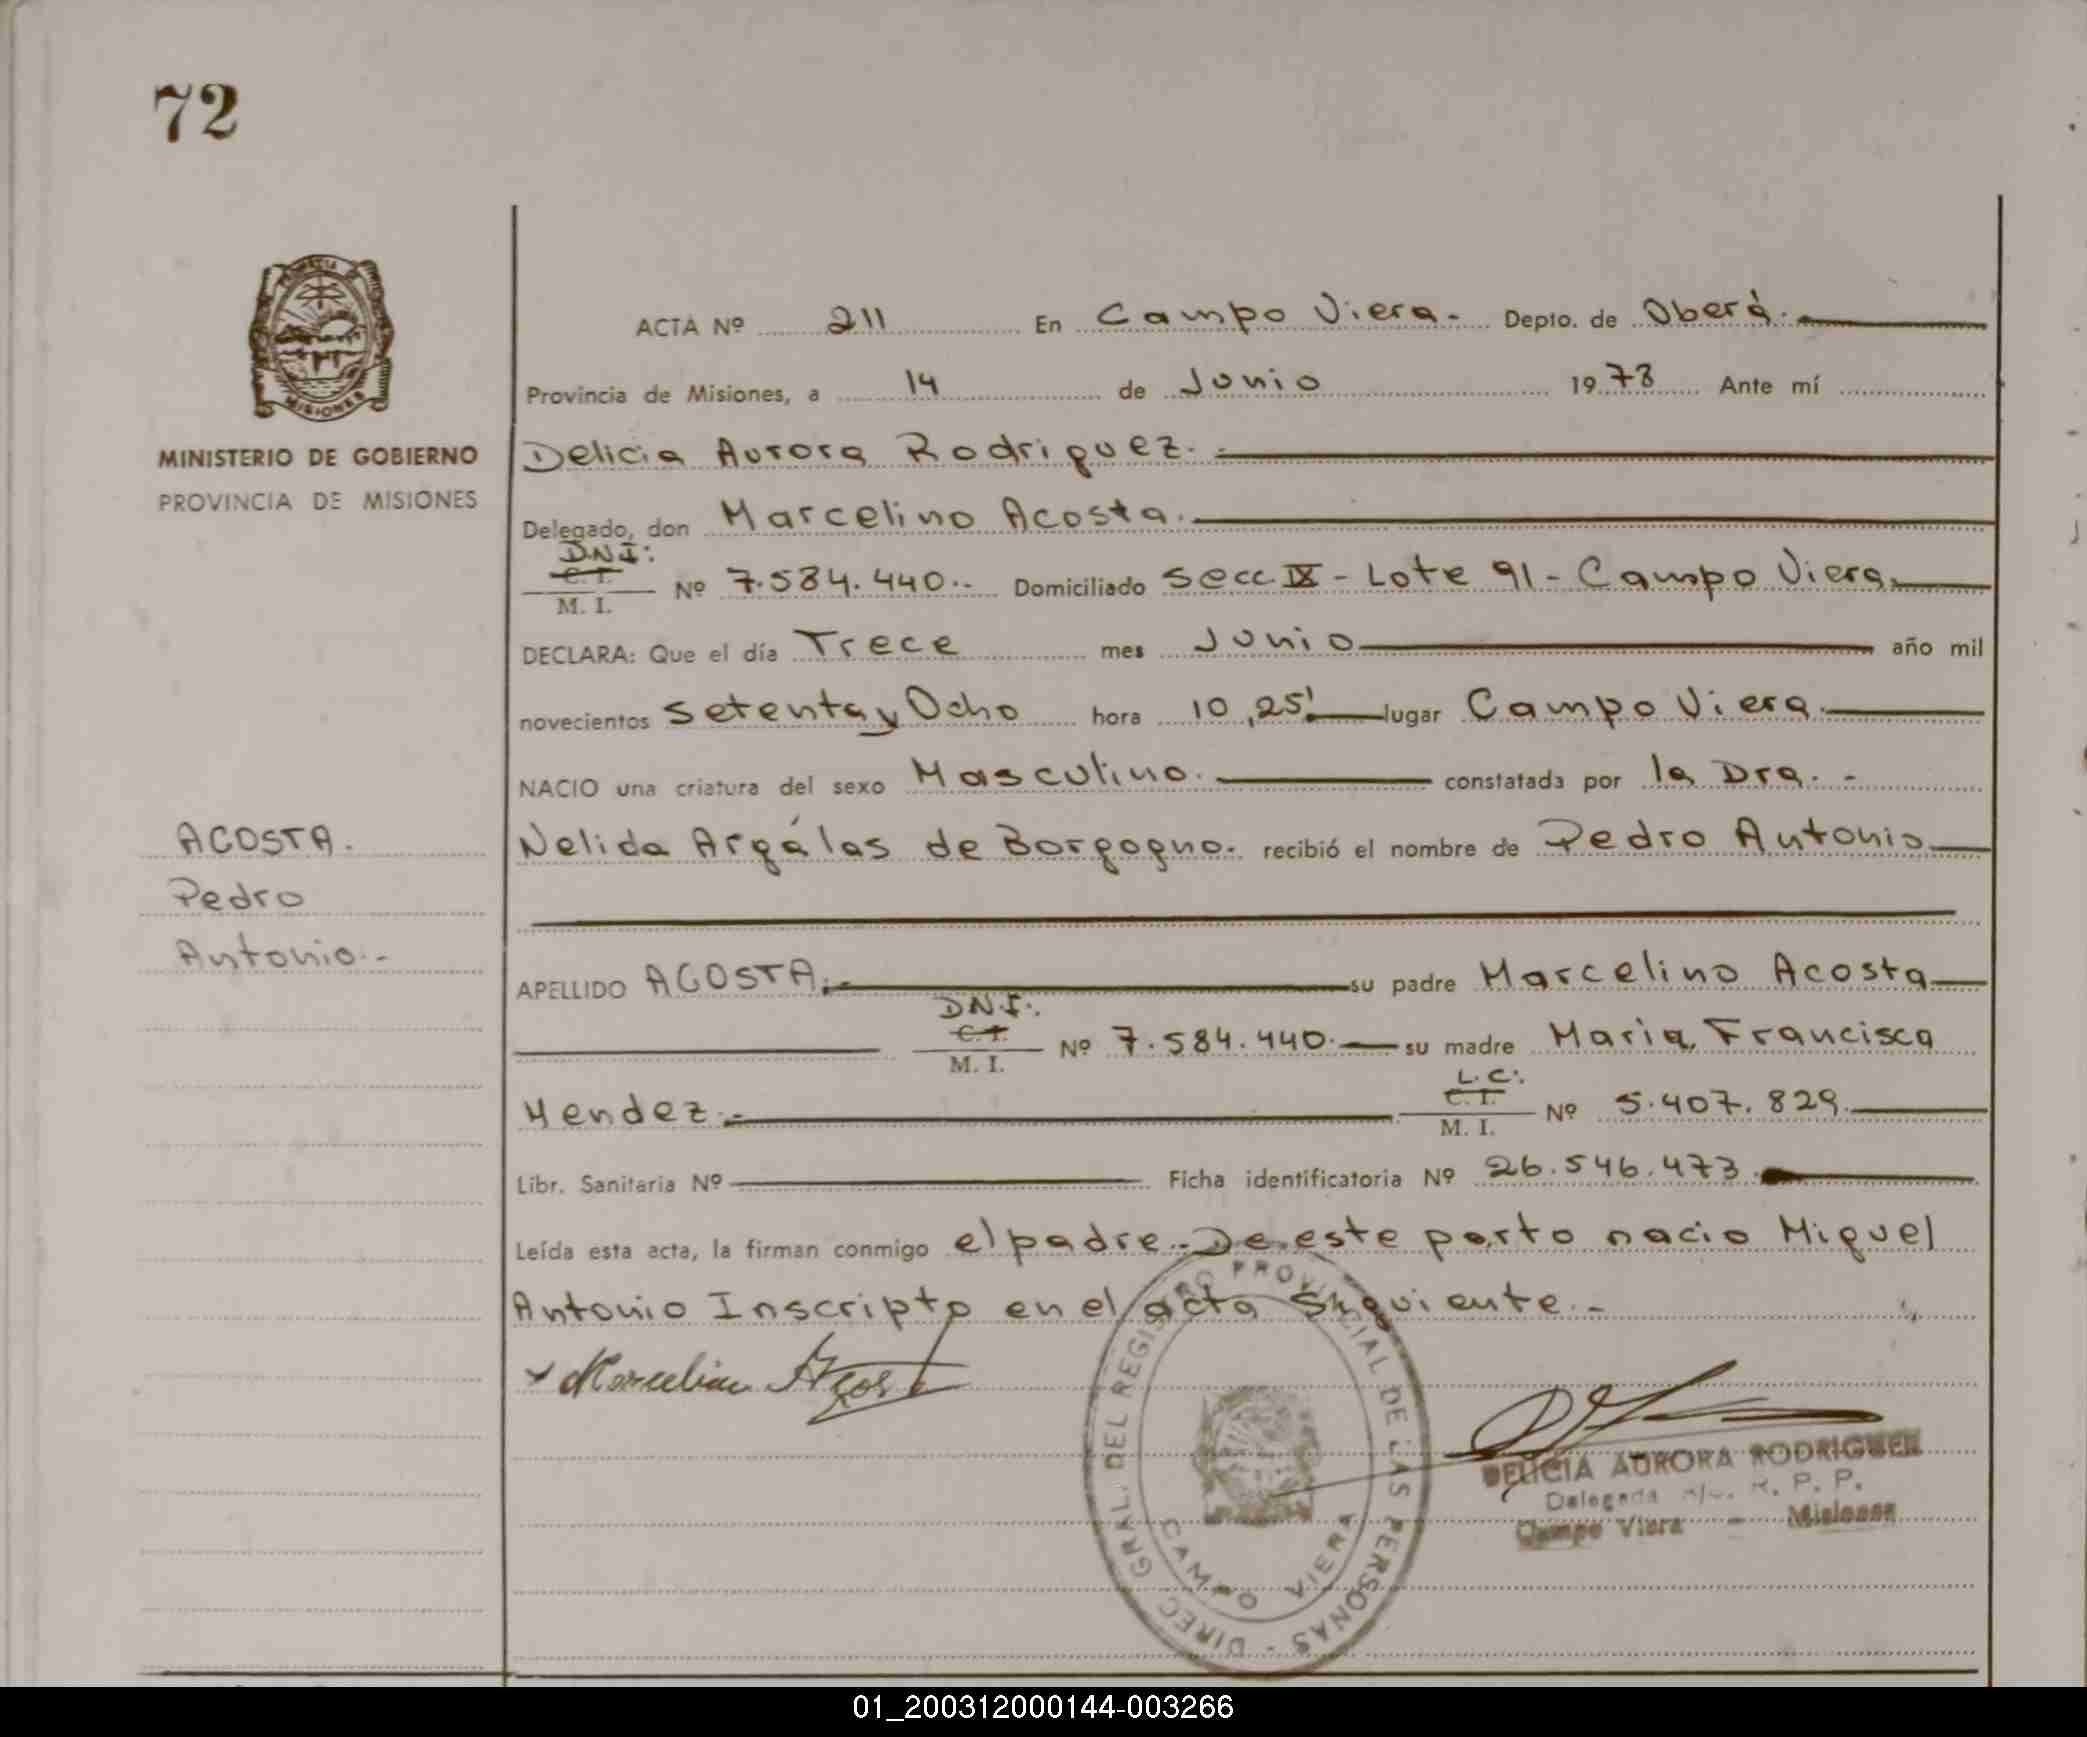 72
PROVINCIA DE
MISIONES
MINISTERIO DE GOBIERNO
PROVINCIA DE MISIONES
ACOSTA.
Pedro
Antonio.-
ACTA Nº 211 En Campo Viera.- Depto. de Oberá.
Provincia de Misiones, a 14 de Junio 1978 Ante mí
Delicia Aurora Rodriguez.
Delegado, don Marcelino Acosta.
DNI:
C. I.
M. I. Nº 7.584.440.- Domiciliado Secc. IX - Lote 91 - Campo Viera
DECLARA: Que el día Trece mes Junio año mil
novecientos Setenta y Ocho hora 10,25' lugar Campo Viera.
NACIO una criatura del sexo Masculino. constatada por la Dra. -
Nelida Argálas de Borgogno. recibió el nombre de Pedro Antonio
APELLIDO ACOSTA.- su padre Marcelino Acosta
DNI:
C. I.
M. I. Nº 7.584.440.- su madre Maria Francisca
L.C:
Mendez.- C. I.
M. I. Nº 5.407.829.
Libr. Sanitaria Nº Ficha identificatoria Nº 26.546.473.
Leída esta acta, la firman conmigo el padre.- De este parto nacio Miguel
Antonio Inscripto en el acta Siguiente.-
Marcelino Acosta
DIREC. GRAL. DEL REGISTRO PROVINCIAL DE LAS PERSONAS -
CAMPO VIERA
DELICIA AURORA RODRIGUEZ
Delegada R. P. P.
Campo Viera - Misiones
01_200312000144-003266